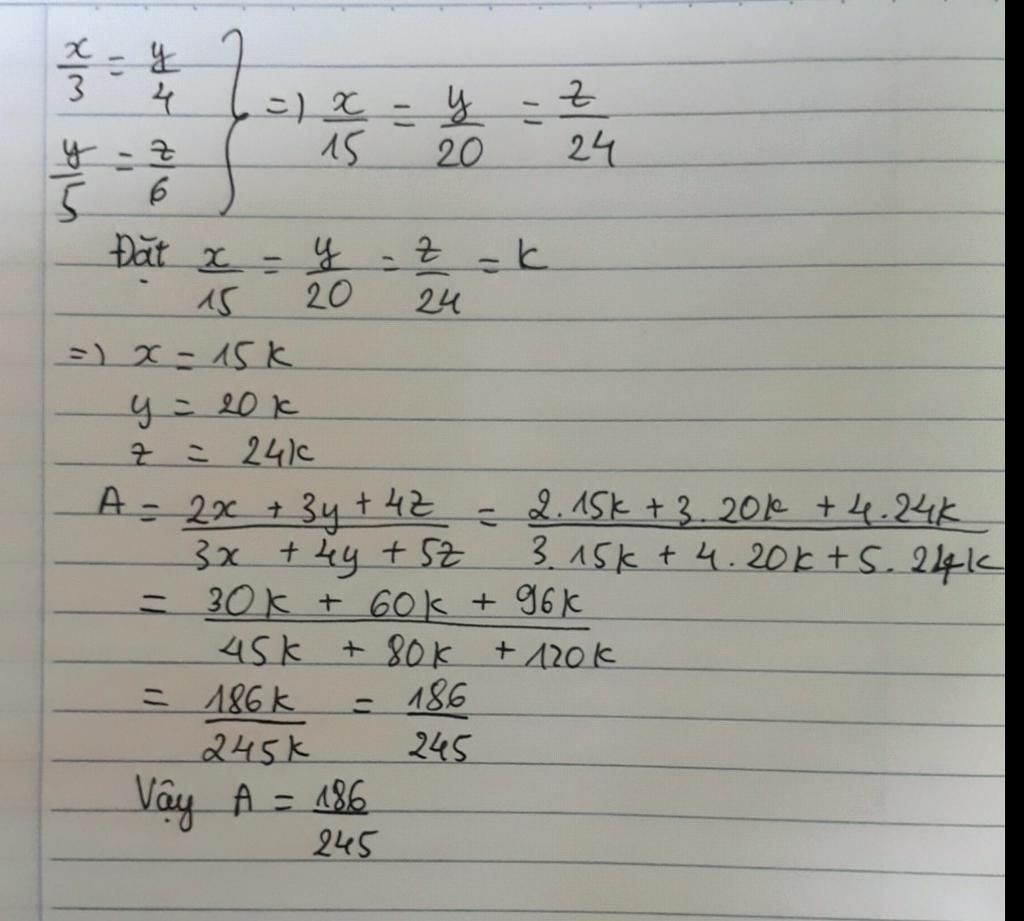 x/3 = y/4
y/5 = z/6 } => x/15 = y/20 = z/24
Đặt x/15 = y/20 = z/24 = k
=> x = 15k
y = 20k
z = 24k
A = (2x + 3y + 4z)/(3x + 4y + 5z) = (2.15k + 3.20k + 4.24k)/(3.15k + 4.20k + 5.24k)
= (30k + 60k + 96k)/(45k + 80k + 120k)
= 186k/245k = 186/245
Vậy A = 186/245